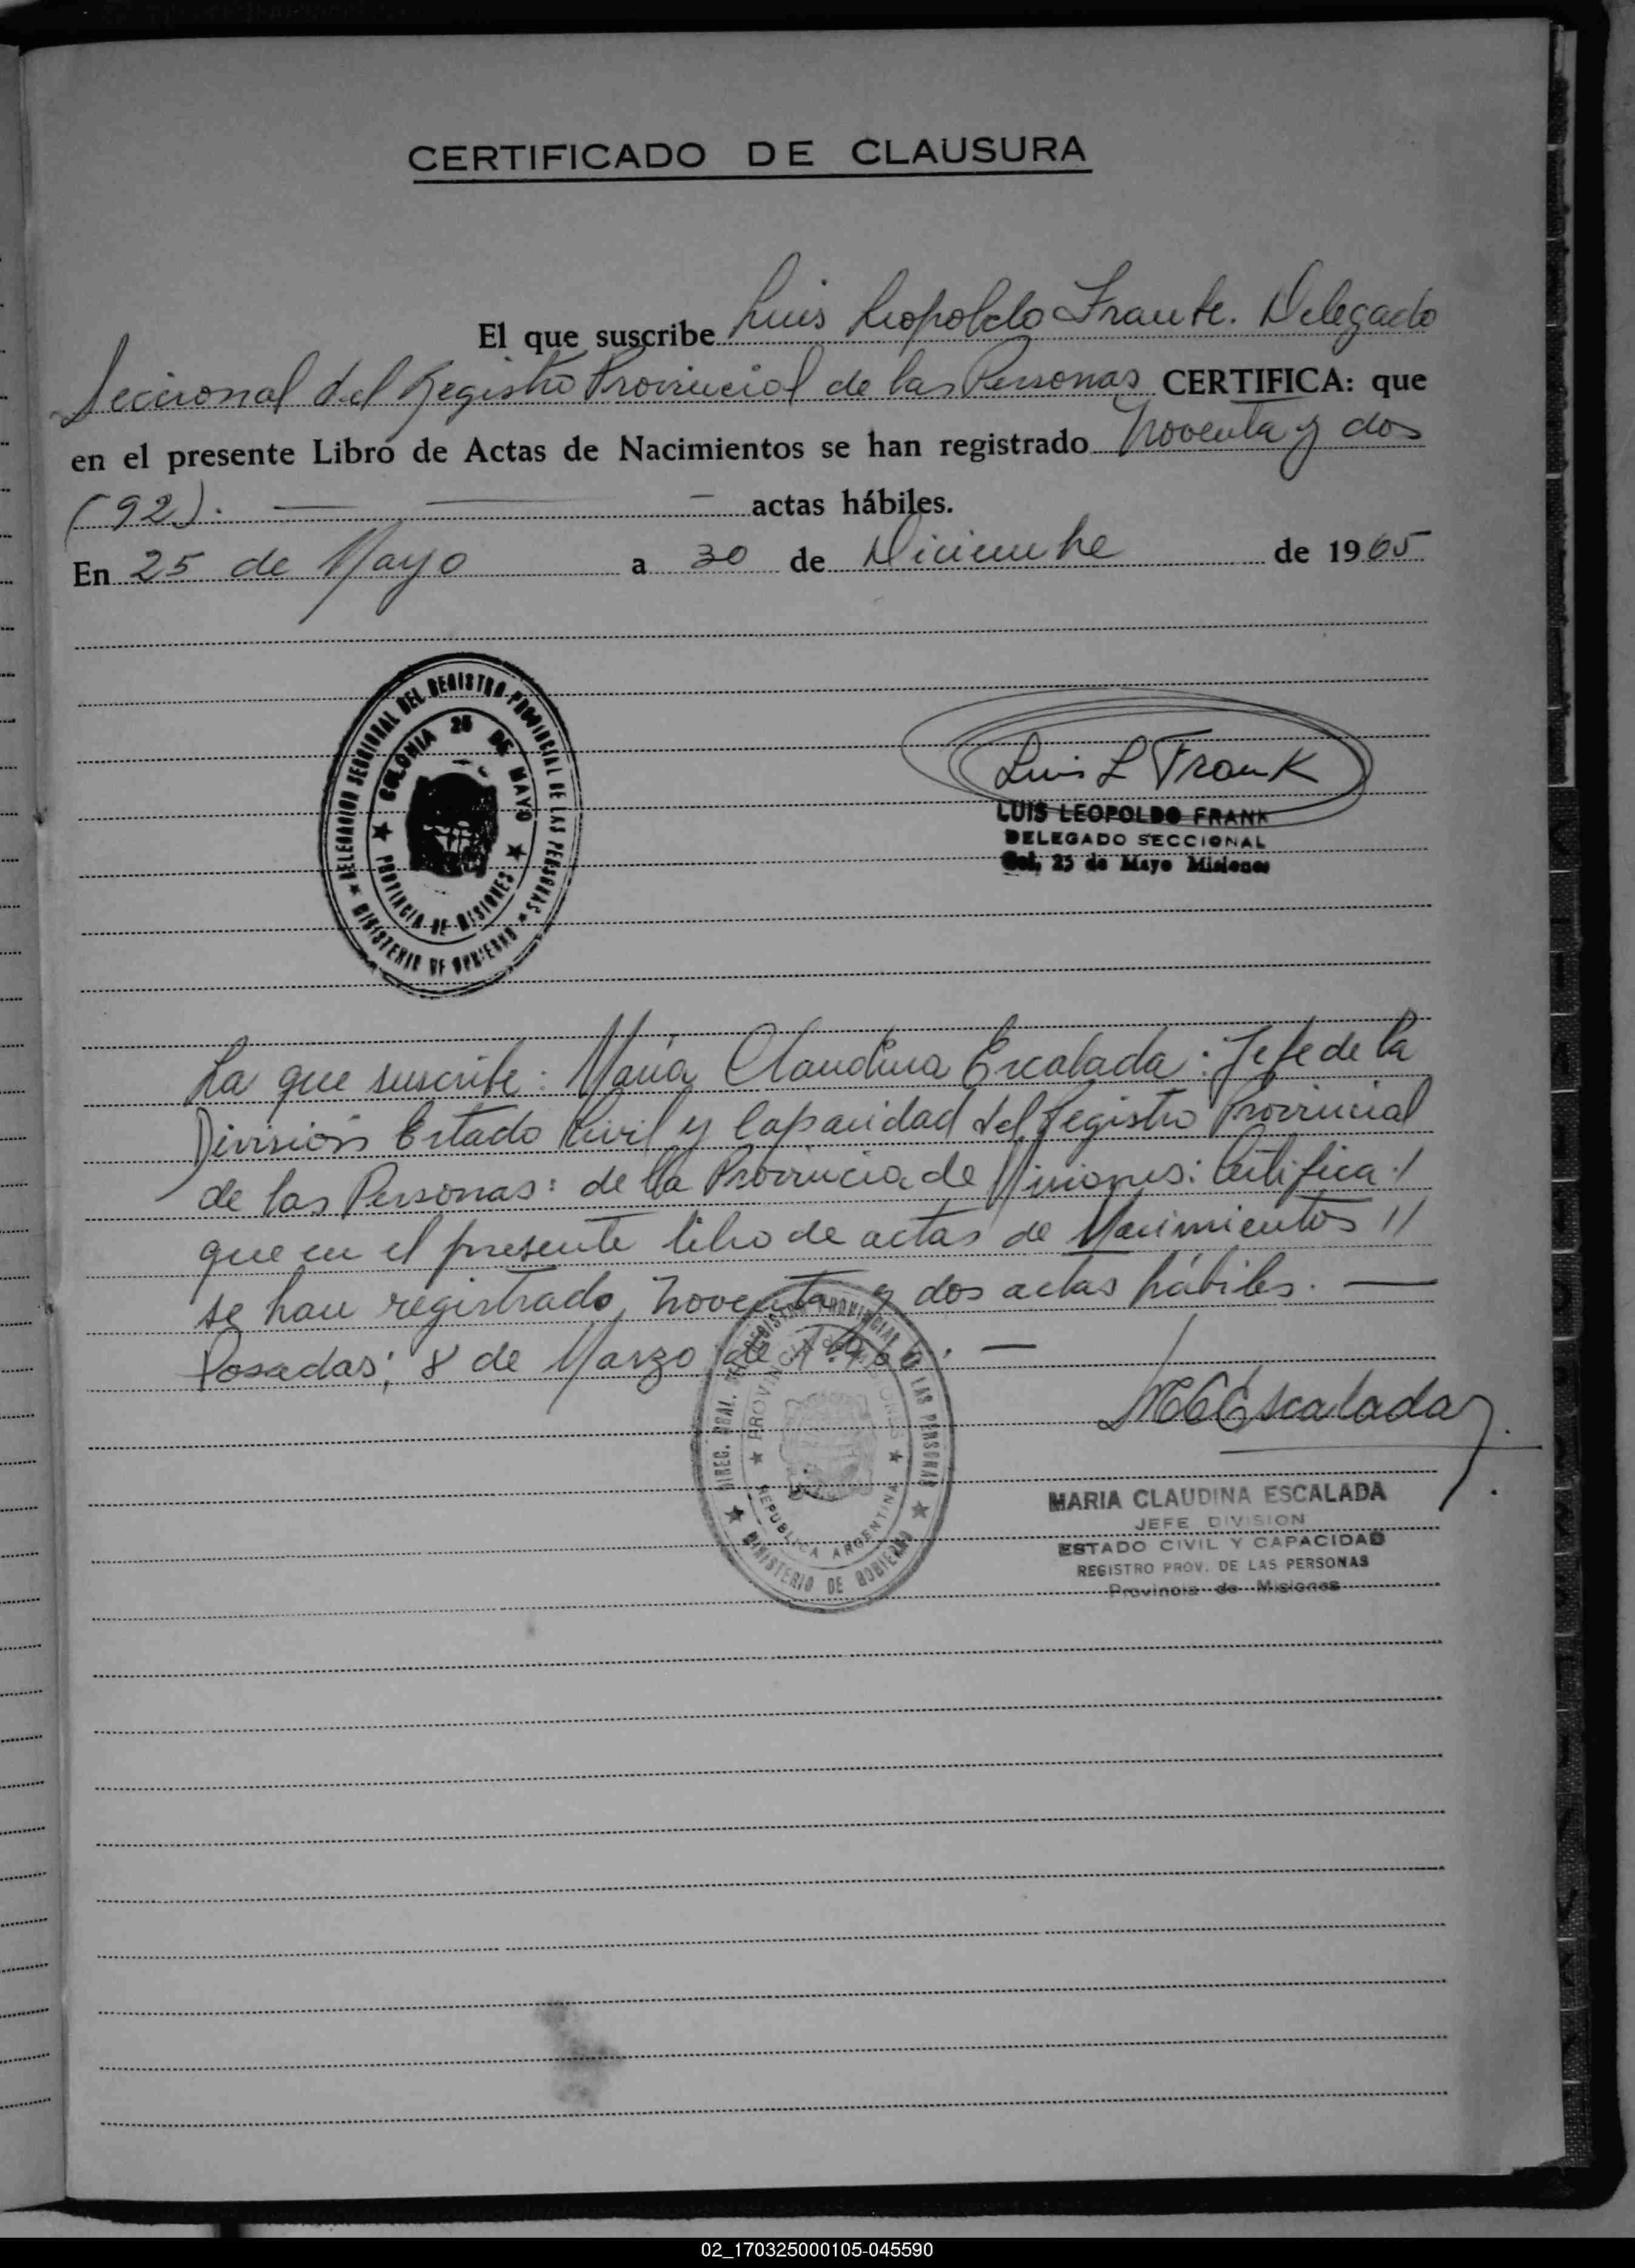 CERTIFICADO DE CLAUSURA
El que suscribe Luis Leopoldo Frank. Delegado
Seccional del Registro Provincial de las Personas CERTIFICA: que
en el presente Libro de Actas de Nacimientos se han registrado Noventa y dos
(92). — — — actas hábiles.
En 25 de Mayo a 30 de Diciembre de 1965
DELEGACION SECCIONAL DEL REGISTRO PROVINCIAL DE LAS PERSONAS
COLONIA 25 DE MAYO
PROVINCIA DE MISIONES
MINISTERIO DE GOBIERNO
Luis L Frank
LUIS LEOPOLDO FRANK
DELEGADO SECCIONAL
Col. 25 de Mayo Misiones
La que suscribe: María Claudina Escalada: Jefe de la
División Estado Civil y Capacidad del Registro Provincial
de las Personas: de la Provincia de Misiones: Certifica:/
que en el presente libro de actas de Nacimientos //
se han registrado, noventa y dos actas hábiles. —
Posadas; 8 de Marzo de 1.966. —
DIREC. GRAL. DEL REGISTRO PROVINCIAL DE LAS PERSONAS
PROVINCIA DE MISIONES
REPUBLICA ARGENTINA
MINISTERIO DE GOBIERNO
MCEscalada
MARIA CLAUDINA ESCALADA
JEFE DIVISION
ESTADO CIVIL Y CAPACIDAD
REGISTRO PROV. DE LAS PERSONAS
Provincia de Misiones
02_170325000105-045590